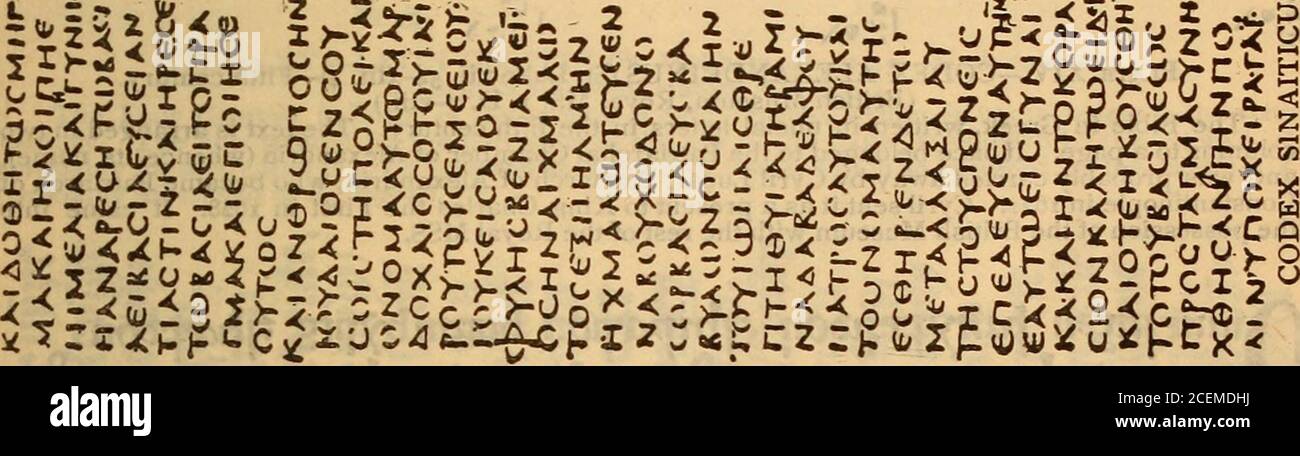 ΚΑΙΔΟΘΗΤΩCΜΗΓ
ΜΑΚΑΙΗΛΟΙΠΗΕ
ΠΙΜΕΛΙΑΚΑΙΓΥΝΗ
ΗΑΝΑΡΕCΗΤΩΒΑCΙ
ΛΕΙΒΑCΙΛΕΥCΕΙΑΝ
ΤΙΑCΤΙΝ·ΚΑΙΗΡΕCΕ
ΤΩΒΑCΙΛΕΙΤΟΠΡΑ
ΓΜΑΚΑΙΕΠΟΙΗCΕ
ΟΥΤΩC
ΚΑΙΑΝΘΡΩΠΟCΗΝ
ΙΟΥΔΑΙΟCΕΝCΟΥ
CΟΙCΤΗΠΟΛΕΙΚΑΙ
ΟΝΟΜΑΑΥΤΩΜΑΡ
ΔΟΧΑΙΟCΟΤΟΥΙΑΕΙ
ΡΟΥΤΟΥCΕΜΕΕΙΟΥ·
ΤΟΥΚΕΙCΑΙΟΥΕΚ
ΦΥΛΗCΒΕΝΙΑΜΕΙ·
ΟCΗΝΑΙΧΜΑΛΩ
ΤΟCΕΞΙΗΛΜΗΝ
ΗΧΜΑΛΩΤΕΥCΕΝ
ΝΑΒΟΥΧΟΔΟΝΟ
CΟΡΒΑCΙΛΕΥCΒΑ
ΒΥΛΩΝΟCΚΑΙΗΝ
ΤΟΥΤΩΠΑΙCΘΡΕ
ΠΤΗΘΥΓΑΤΗΡΑΜΙ
ΝΑΔΑΒΑΔΕΛΦΟΥ
ΠΑΤΡΟCΑΥΤΟΥΚΑΙ
ΤΟΥΝΟΜΑΑΥΤΗC
ΕCΘΗΡΕΝΔΕΤΩ
ΜΕΤΑΛΛΑΞΑΙΑΥ
ΤΗCΤΟΥCΓΟΝΕΙC
ΕΠΕΔΕΥCΕΝΑΥΤΗΝ
ΕΑΥΤΩΕΙCΓΥΝΑΙ
ΚΑ·ΚΑΙΗΝΤΟΚΟΡΑ
CΙΟΝΚΑΛΗΤΩΕΙΔΕΙ
ΚΑΙΟΤΕΗΚΟΥCΘΗ
ΤΟΤΟΥΒΑCΙΛΕΟC
ΠΡΟCΤΑΓΜΑCΥΝΗ
ΧΘΗCΑΝΤΗΝΠΟ
ΛΙΝΥΠΟΧΕΙΡΑΓΑΙ·
CODEX SINAITICU
alamy
Image ID: 2CEMDHJ
www.alamy.com